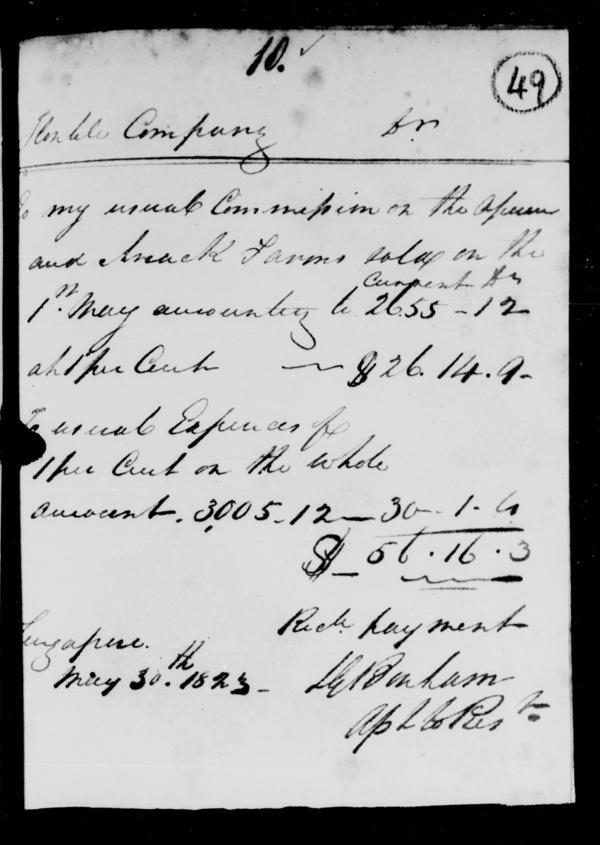 10.
49
Honble Company Dr
To my usual Commission on the Opium
and Arrack Farms sold on the
Current Ds
1st. May amounting to 2655 - 12
at 1 per Cent $ 26. 14. 9 -
To usual Expences of
1 per Cent on the whole
amount. 3005 - 12 — 30 - 1 - 6
$ 56 . 16 . 3
Recd. payment
Singapore.
May 30th. 1823 - SG Bonham
Asst to Rest